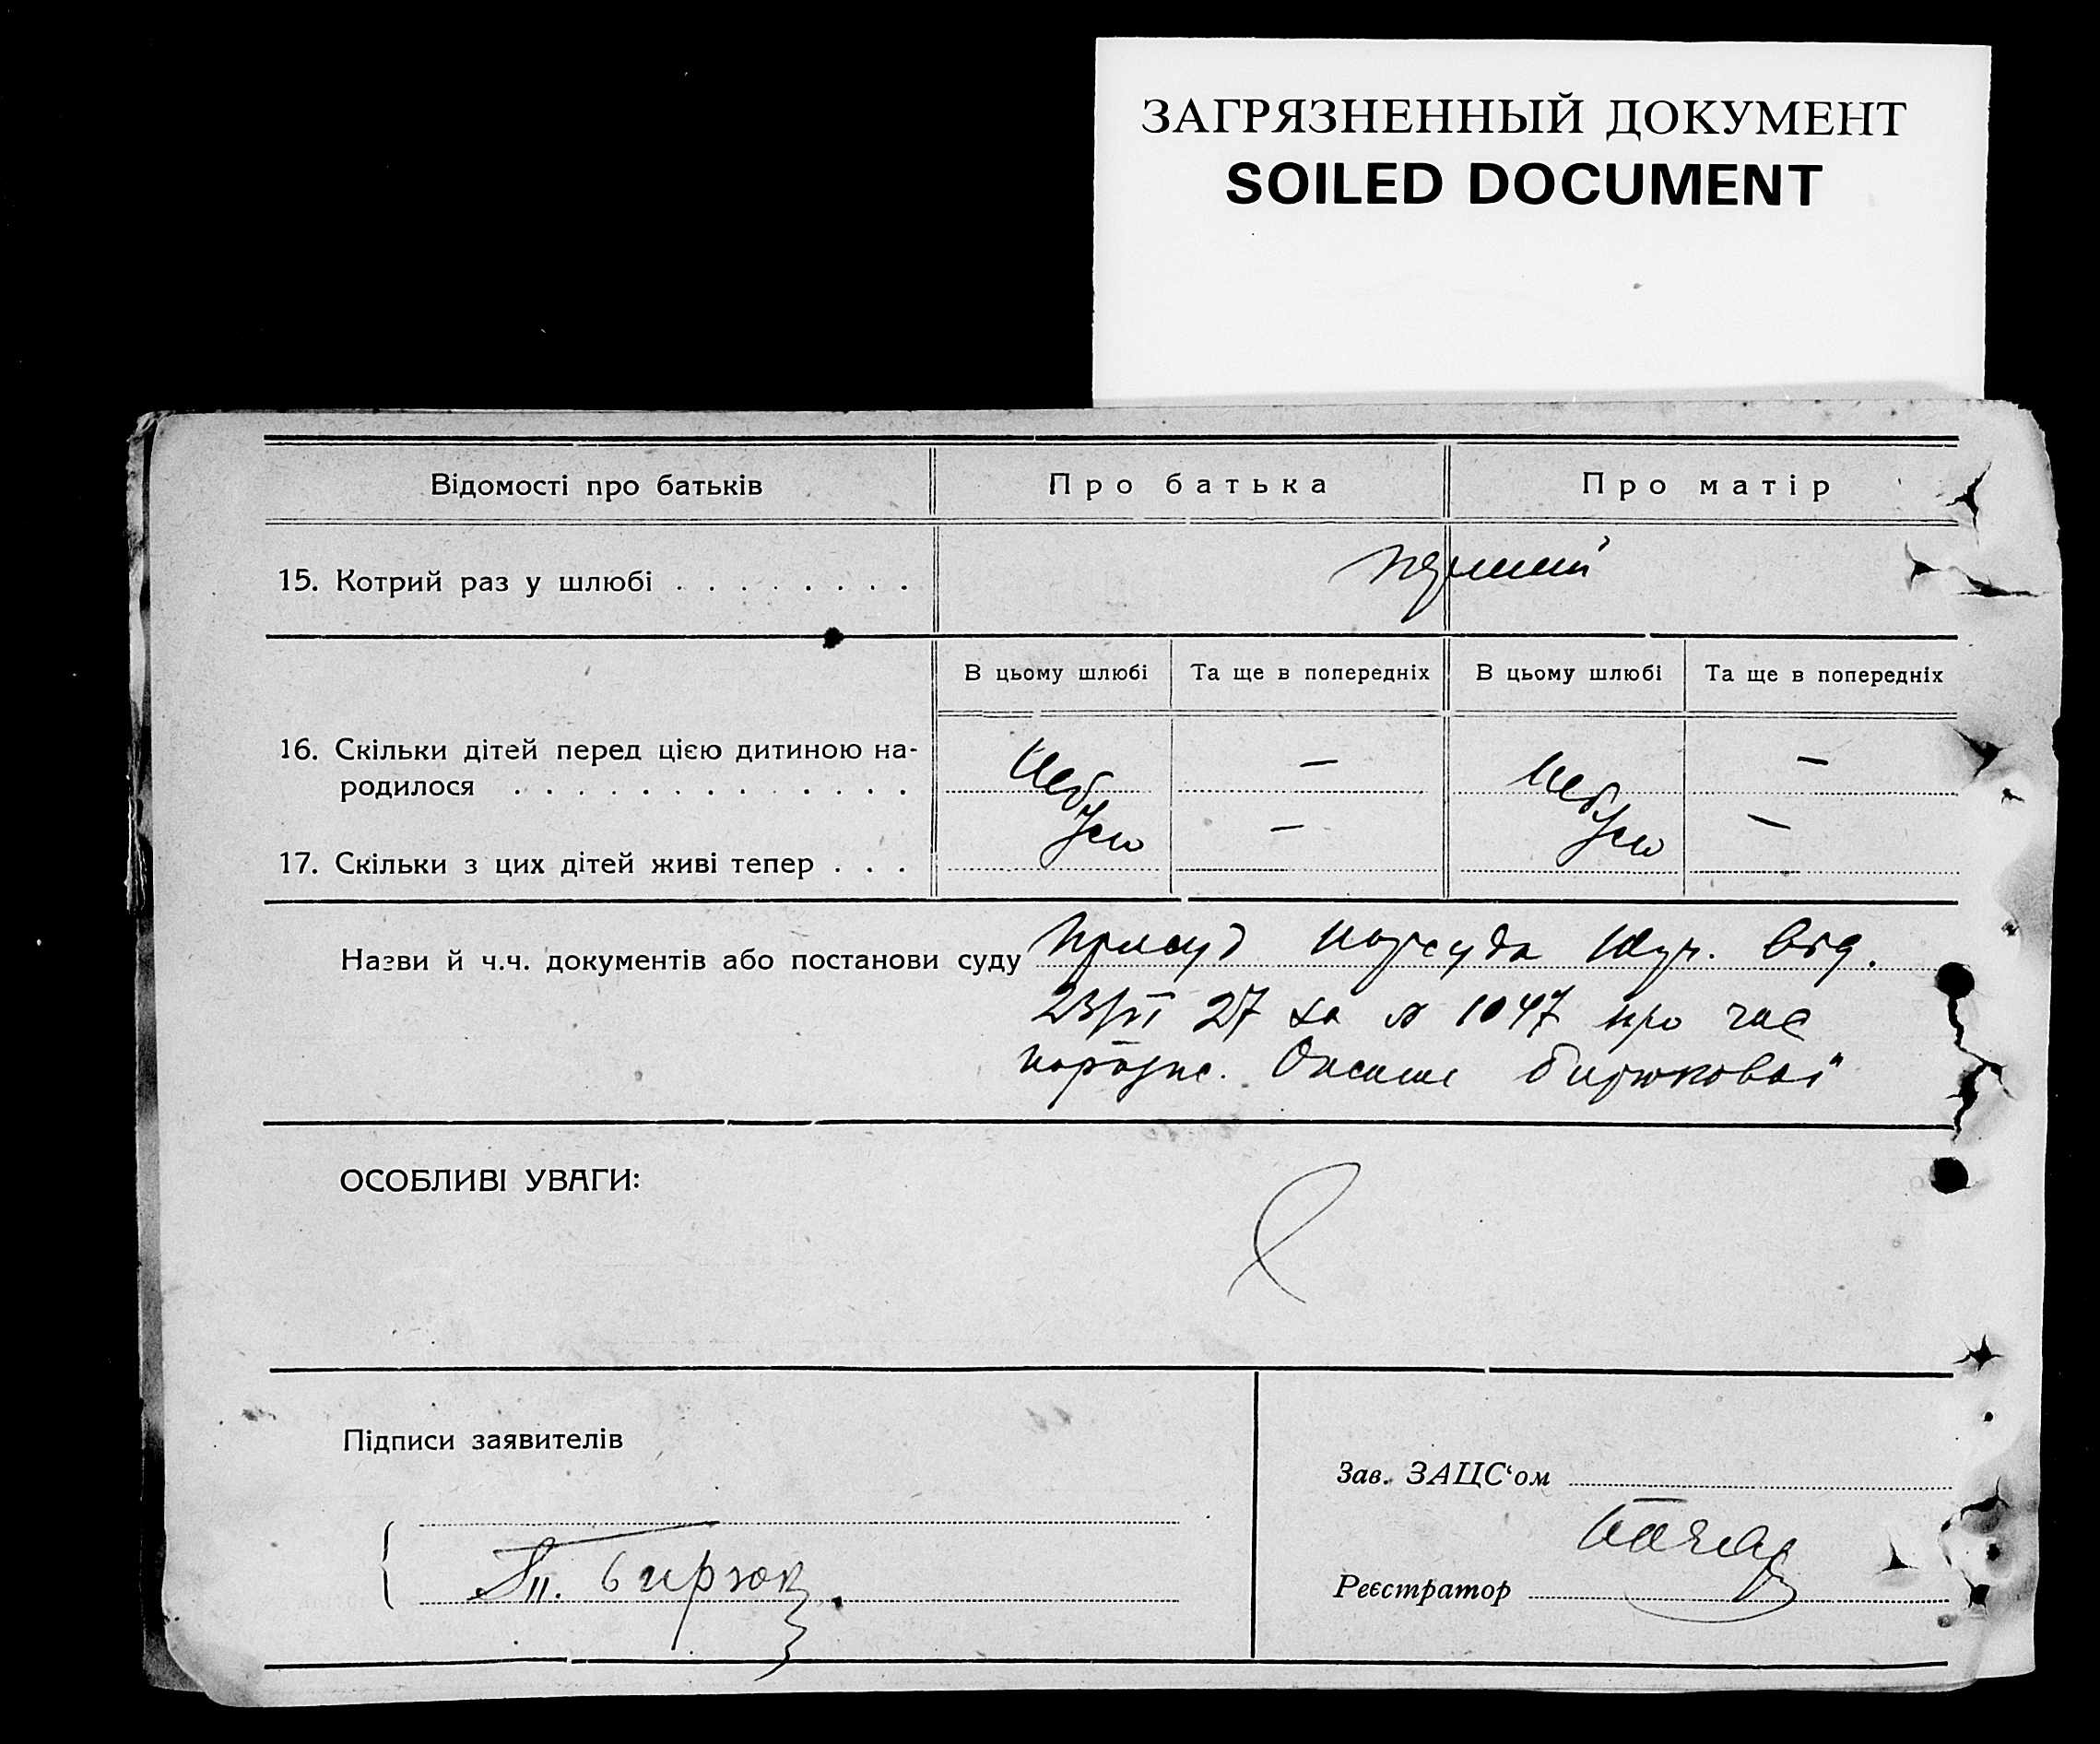 ЗАГРЯЗНЕННЫЙ ДОКУМЕНТ
SOILED DOCUMENT
Відомості про батьків
Про батька
Про матір
15. Котрий раз у шлюбі . . . . . . . .
перший
В цьому шлюбі
Та ще в попередніх
В цьому шлюбі
Та ще в попередніх
16. Скільки дітей перед цією дитиною на-
родилося . . . . . . . . . . . . .
— —
17. Скільки з цих дітей живі тепер . . .
— —
Назви й ч.ч. документів або постанови суду Присуд нарсуда від.
23/VI 27 за № 1047 про час
Бирюкової
ОСОБЛИВІ УВАГИ:
Підписи заявителів
Бирюк
Зав. ЗАЦС‘ом
Реєстратор